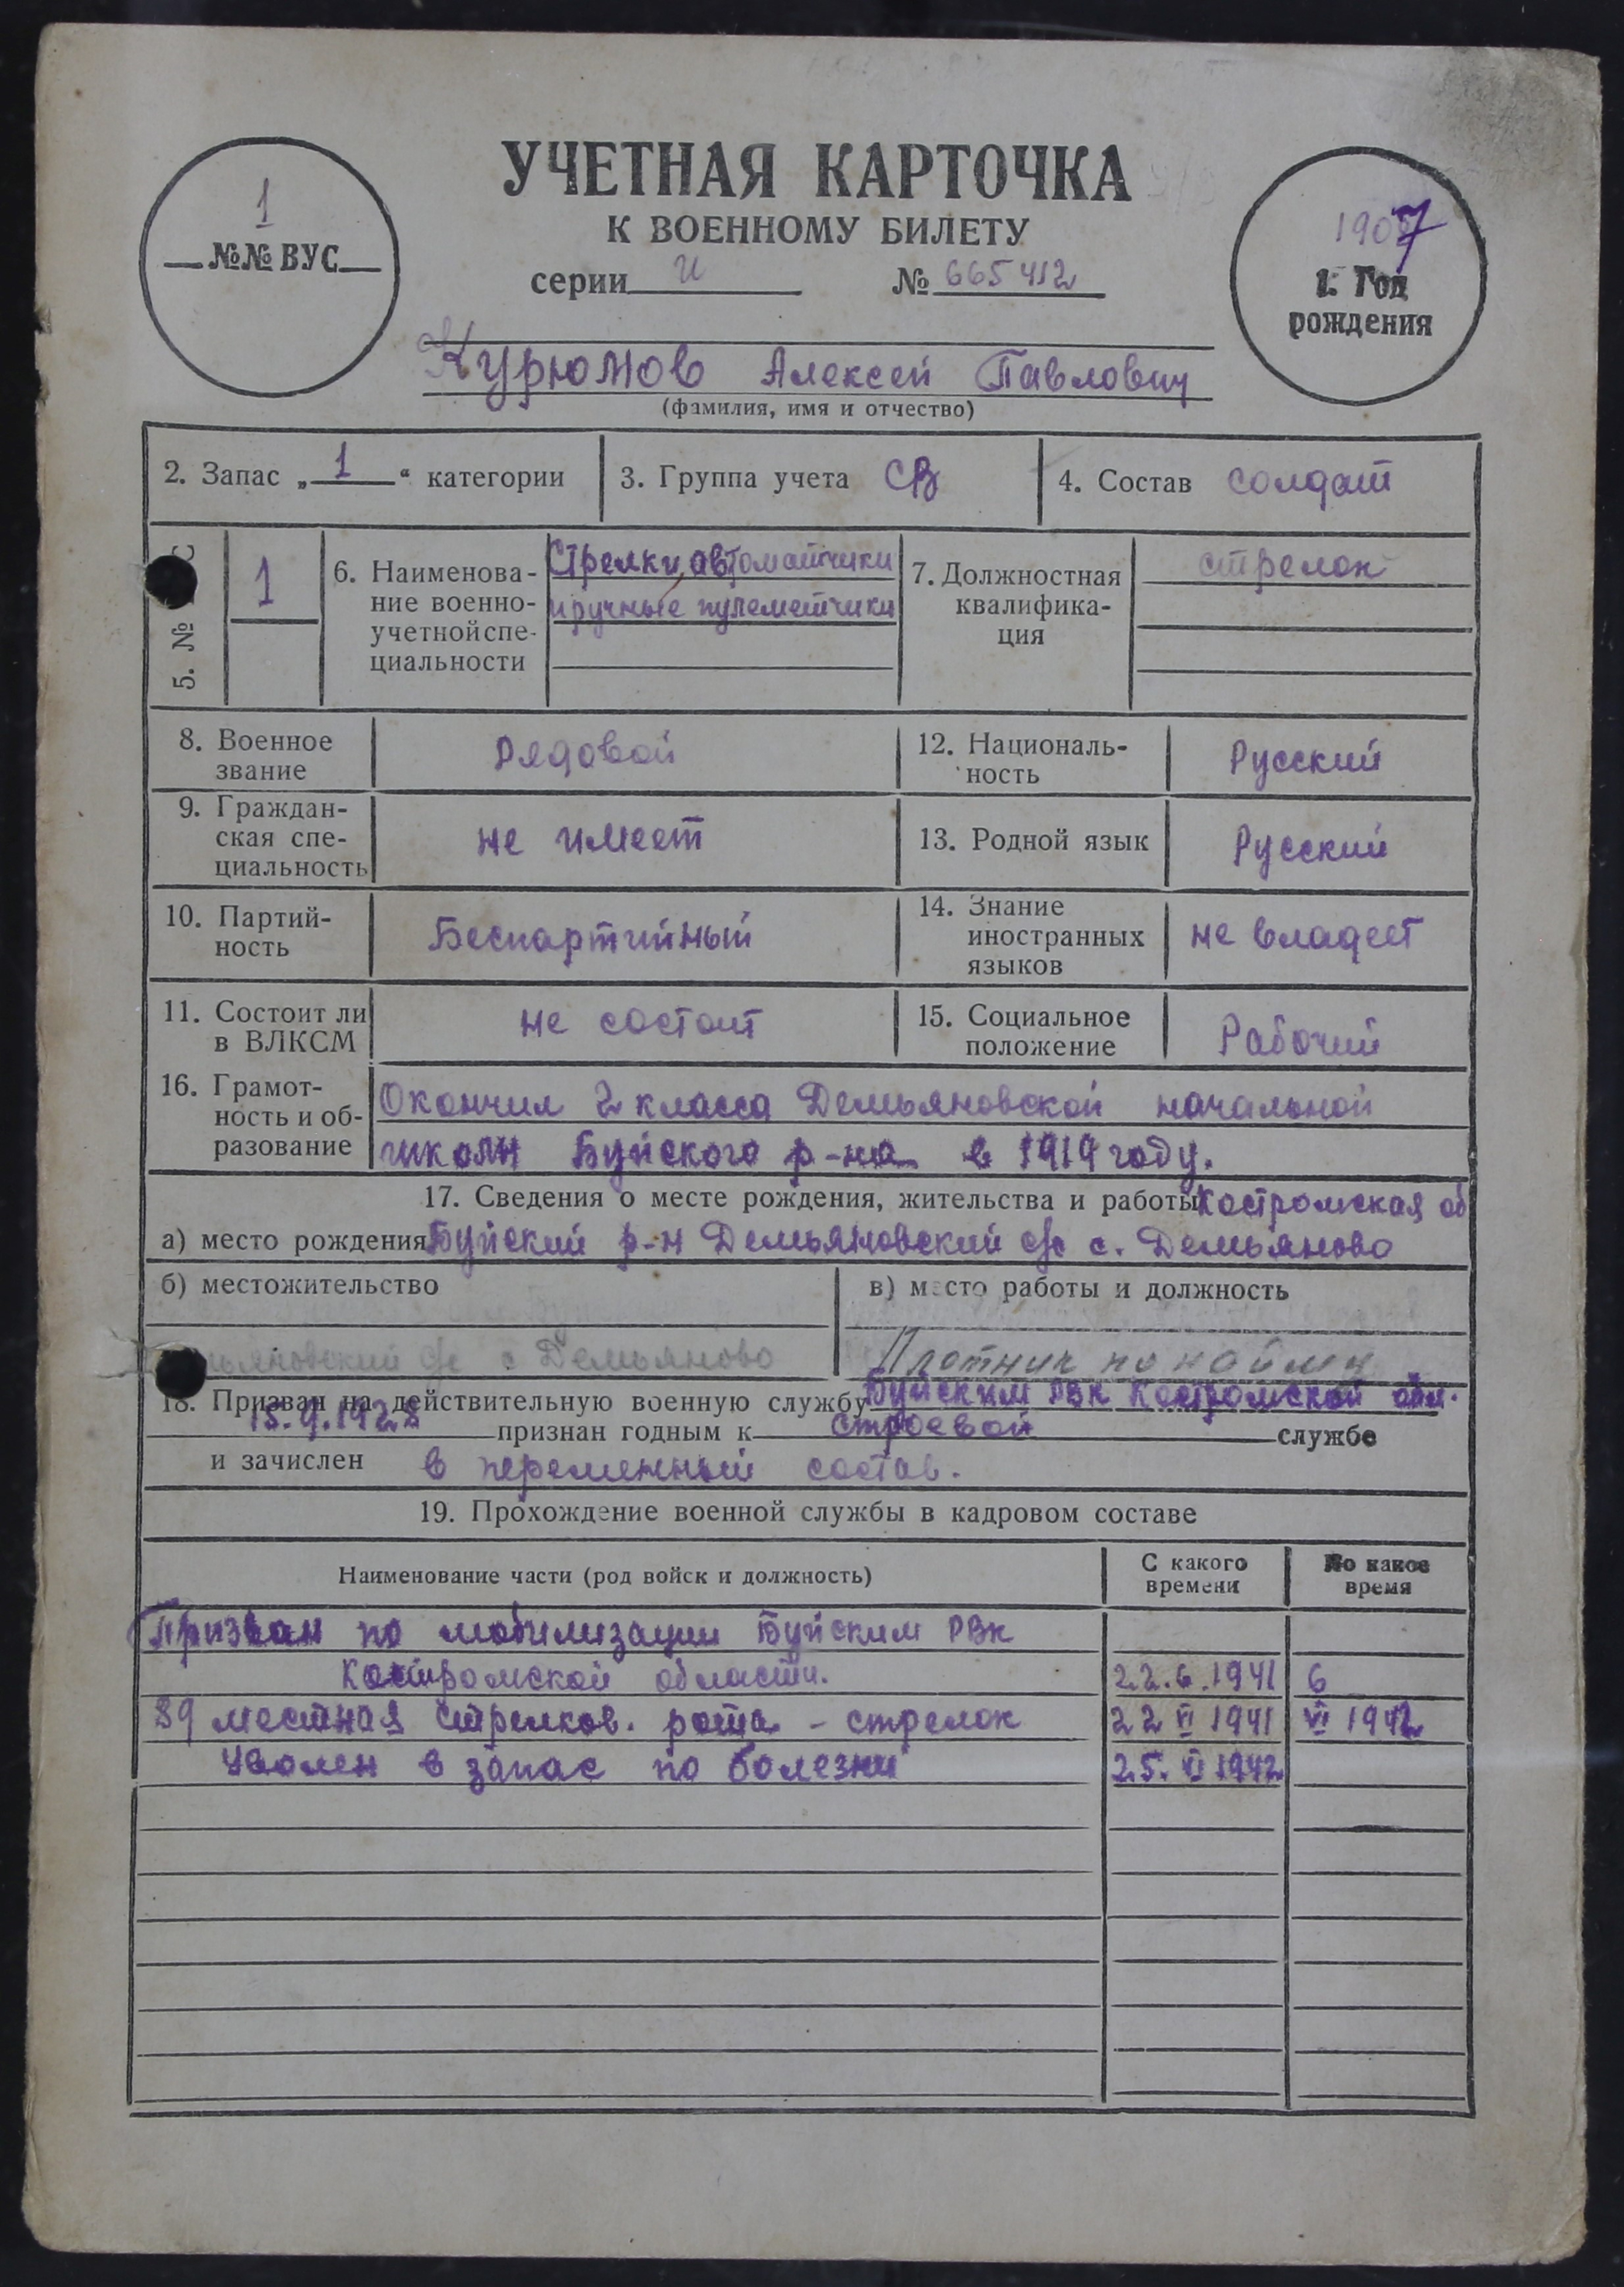 УЧЕТНАЯ КАРТОЧКА
К ВОЕННОМУ БИЛЕТУ
серии И № 665412
1
№№ ВУС
1907
1. Год
рождения
Курюмов Алексей Павлович
(фамилия, имя и отчество)
2. Запас „1“ категории
3. Группа учета СВ
4. Состав солдат
5. № С
1
6. Наименова-
ние военно-
учетной спе-
циальности
Стрелки, автоматчики
и ручные пулеметчики
7. Должностная
квалифика-
ция
стрелок
8. Военное
звание
Рядовой
12. Националь-
ность
Русский
9. Граждан-
ская спе-
циальность
не имеет
13. Родной язык
Русский
10. Партий-
ность
Беспартийный
14. Знание
иностранных
языков
не владеет
11. Состоит ли
в ВЛКСМ
не состоит
15. Социальное
положение
Рабочий
16. Грамот-
ность и об-
разование
Окончил 2 класса Демьяновской начальной
школы Буйского р-на в 1919 году.
17. Сведения о месте рождения, жительства и работы Костромская об
а) место рождения Буйский р-н Демьяновский с/с с. Демьяново
б) местожительство
в) место работы и должность
ьяновский с/с с Демьяново
Плотник по найму
18. Призван на действительную военную службу Буйским РВК Костромской обл.
15.9.1928 признан годным к строевой службе
и зачислен в переменный состав.
19. Прохождение военной службы в кадровом составе
Наименование части (род войск и должность)
С какого
времени
По какое
время
Призван по мобилизации Буйским РВк
Костромской области. 22.6.1941 6
89 местная стрелков. рота - стрелок 22 VI 1941 VI 1942
Уволен в запас по болезни 25. VI 1942